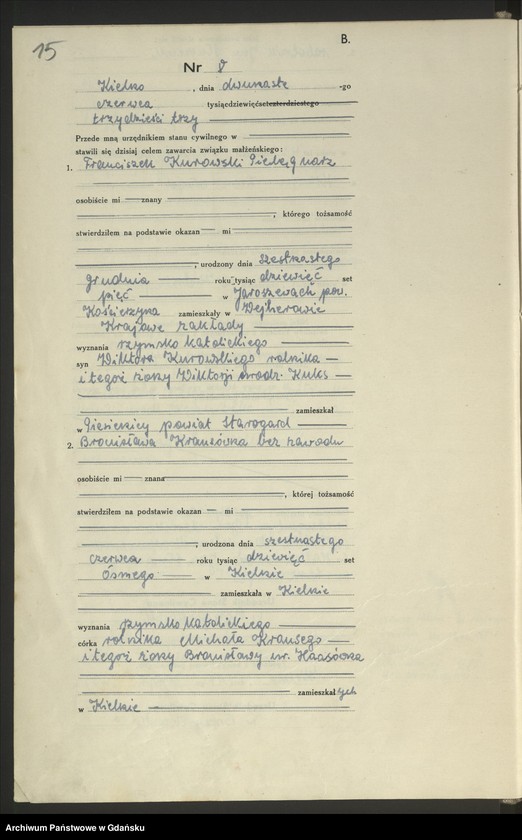 15
B.
Nr 8
Kielno , dnia dwunaste -go
czerwca tysiącdziewięćset czterdziestego
trzydzieści trzy
Przede mną urzędnikiem stanu cywilnego w
stawili się dzisiaj celem zawarcia związku małżeńskiego:
1. Franciszek Kurowski Pielęgniarz
osobiście mi znany
, którego tożsamość
stwierdziłem na podstawie okazan mi
, urodzony dnia szesnastego
grudnia roku tysiąc dziewięć set
pięć w Jaroszewach pow.
Kościerzyna zamieszkały w Wejherowie
Krajowe zakłady
wyznania rzymsko katolickiego
syn Wiktora Kurowskiego rolnika
i tegoż żony Wiktorji urodz. Kuks
zamieszkał
w powiat Starogard
2. Bronisława Krauzówka bez zawodu
osobiście mi znana
, której tożsamość
stwierdziłem na podstawie okazan mi
, urodzona dnia szesnastego
czerwca roku tysiąc dziewięć set
ósmego w Kielnie
zamieszkała w Kielnie
wyznania rzymsko katolickiego
córka rolnika Michała Krausego
i tegoż żony Bronisławy ur. Haasówka
zamieszkał ych
w Kielnie
Archiwum Państwowe w Gdańsku